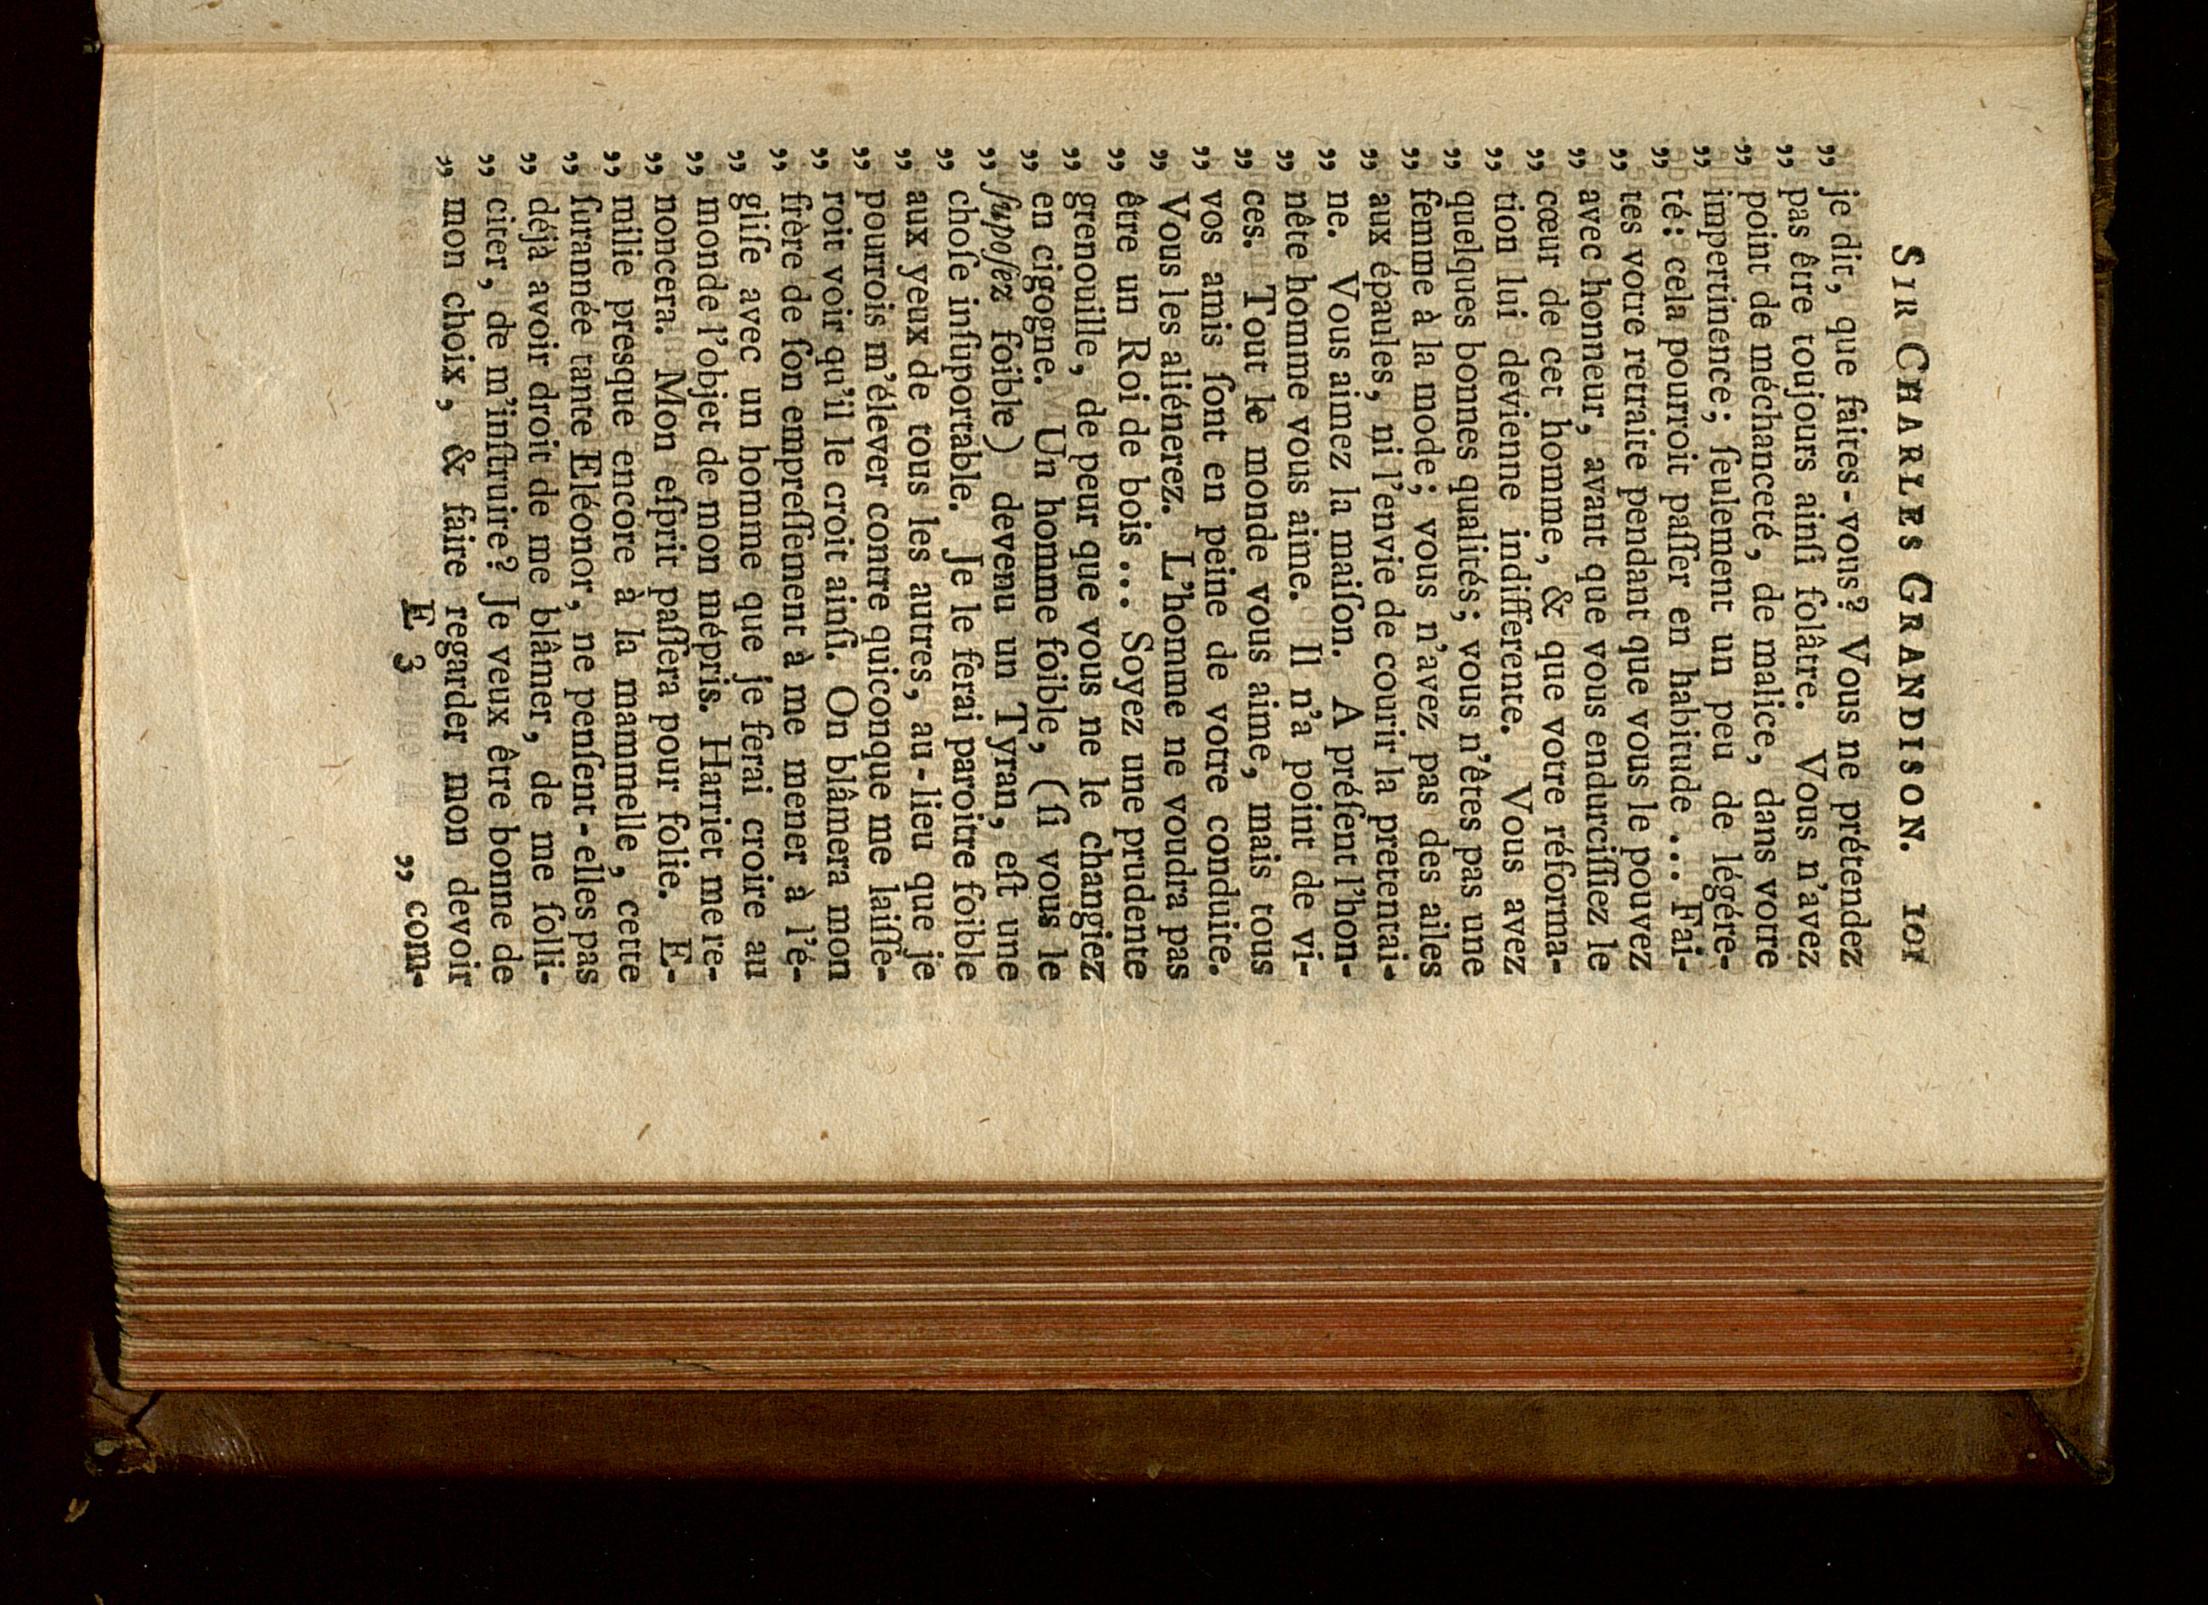 SIR CHARLES GRANDISON. 101
„ je dit, que faites-vous? Vous ne prétendez
„ pas être toujours ainſi folâtre. Vous n'avez
„ point de méchanceté, de malice, dans votre
„ impertinence; ſeulement un peu de légére-
„ té: cela pourroit paſſer en habitude ... Fai-
„ tes votre retraite pendant que vous le pouvez
„ avec honneur, avant que vous endurciſſiez le
„ cœur de cet homme, & que votre réforma-
„ tion lui devienne indifferente. Vous avez
„ quelques bonnes qualités; vous n'êtes pas une
„ femme à la mode; vous n'avez pas des ailes
„ aux épaules, ni l'envie de courir la pretentai-
„ ne. Vous aimez la maiſon. A préſent l'hon-
„ nête homme vous aime. Il n'a point de vi-
„ ces. Tout le monde vous aime, mais tous
„ vos amis ſont en peine de votre conduite.
„ Vous les aliénerez. L'homme ne voudra pas
„ être un Roi de bois ... Soyez une prudente
„ grenouille, de peur que vous ne le changiez
„ en cigogne. Un homme foible, (ſi vous le
„ ſupoſez foible) devenu un Tyran, eſt une
„ choſe inſuportable. Je le ferai paroitre foible
„ aux yeux de tous les autres, au-lieu que je
„ pourrois m'élever contre quiconque me laiſſe-
„ roit voir qu'il le croit ainſi. On blâmera mon
„ frère de ſon empreſſement à me mener à l'é-
„ gliſe avec un homme que je ferai croire au
„ monde l'objet de mon mépris. Harriet me re-
„ noncera. Mon eſprit paſſera pour folie. E-
„ milie presque encore à la mammelle, cette
„ ſurannée tante Eléonor, ne penſent-elles pas
„ déjà avoir droit de me blâmer, de me ſolli-
„ citer, de m'inſtruire? Je veux être bonne de
„ mon choix, & faire regarder mon devoir
E 3 „ com-